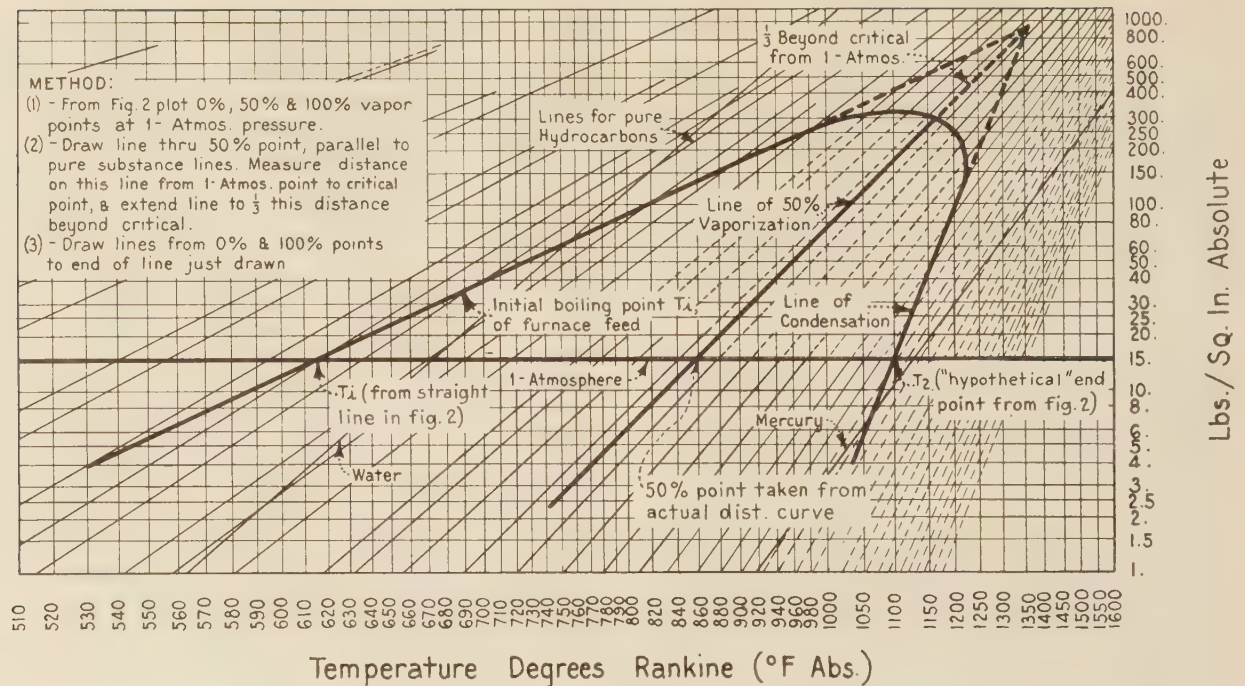 METHOD:
(1) - From Fig. 2 plot 0%, 50% & 100% vapor
points at 1- Atmos. pressure.
(2) - Draw line thru 50% point, parallel to
pure substance lines. Measure distance
on this line from 1-Atmos. point to critical
point, & extend line to 1/3 this distance
beyond critical.
(3) - Draw lines from 0% & 100% points
to end of line just drawn
1/3 Beyond critical
from 1-Atmos.
Lines for pure
Hydrocarbons
Line of 50%
Vaporization
Initial boiling point Ti,
of furnace feed
Line of
Condensation
Ti (from straight
line in fig. 2)
1-Atmosphere
T2 ("hypothetical" end
point from fig. 2)
Mercury
Water
50% point taken from
actual dist. curve
1000.
800.
600.
500.
400.
300.
250.
200.
150.
100.
80.
60.
50.
40.
30.
25.
20.
15.
10.
8.
6.
5.
4.
3.
2.5
2.
1.5
1.
Lbs./Sq. In. Absolute
510 520 530 540 550 560 570 580 590 600 610 620 630 640 650 660 670 680 690 700 710 720 730 740 750 760 770 780 790 800 820 840 860 880 900 920 940 960 980 1000 1050 1100 1150 1200 1250 1300 1350 1400 1450 1500 1550 1600
Temperature Degrees Rankine (°F Abs.)